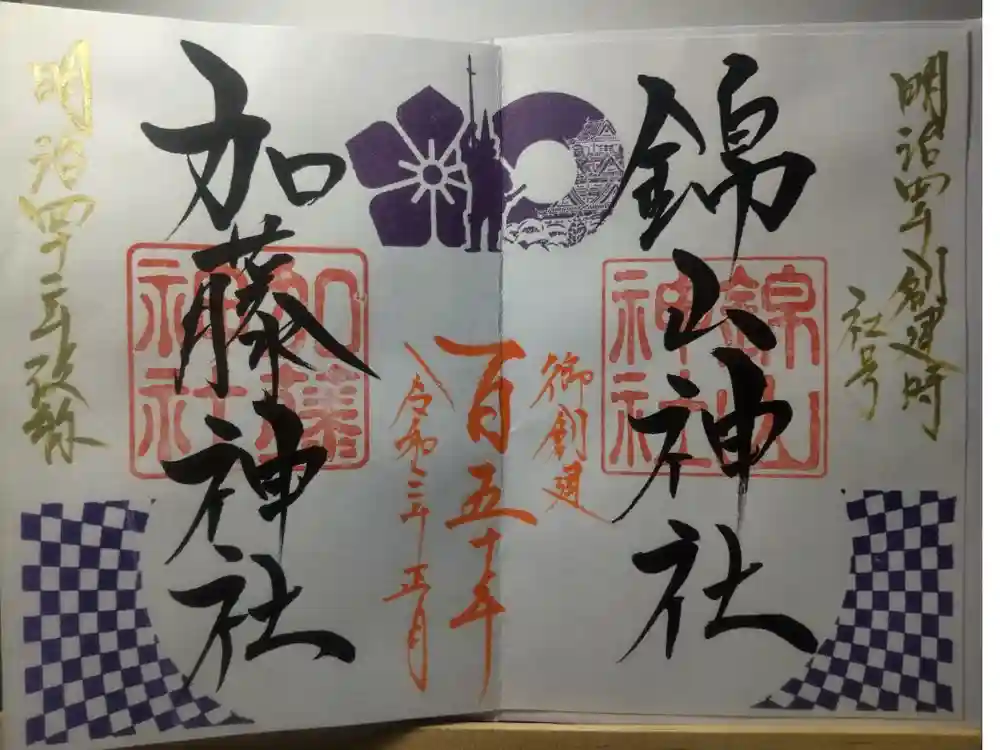 明治四年御創建時
社号
錦山神社
錦山神社
御創建
百五十年
令和三年 正月
加藤神社
加藤神社
明治四十二年改称